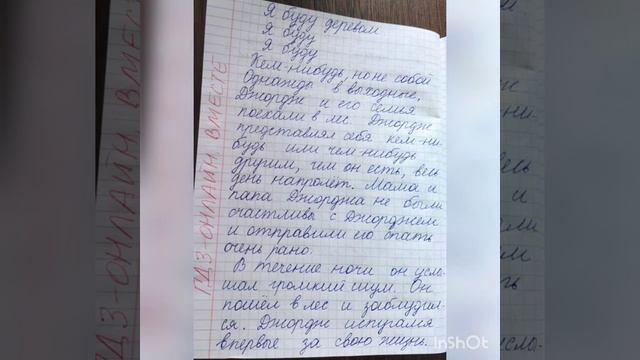 Я буду деревом
Я буду
Я буду
Кем-нибудь, но не собой
Однажды в выходные,
Джордж и его семья
поехали в лес. Джордж
представлял себя кем-ни-
будь или чем-нибудь
другим, чем он есть, весь
день напролёт. Мама и
папа Джорджа не были
счастливы с Джорджем
и отправили его спать
очень рано.
В течение ночи он услы-
шал громкий шум. Он
пошёл в лес и заблудил-
ся. Джордж испугался
впервые за свою жизнь.
ГДЗ-ОНЛАЙН ВМЕСТЕ
InShOt